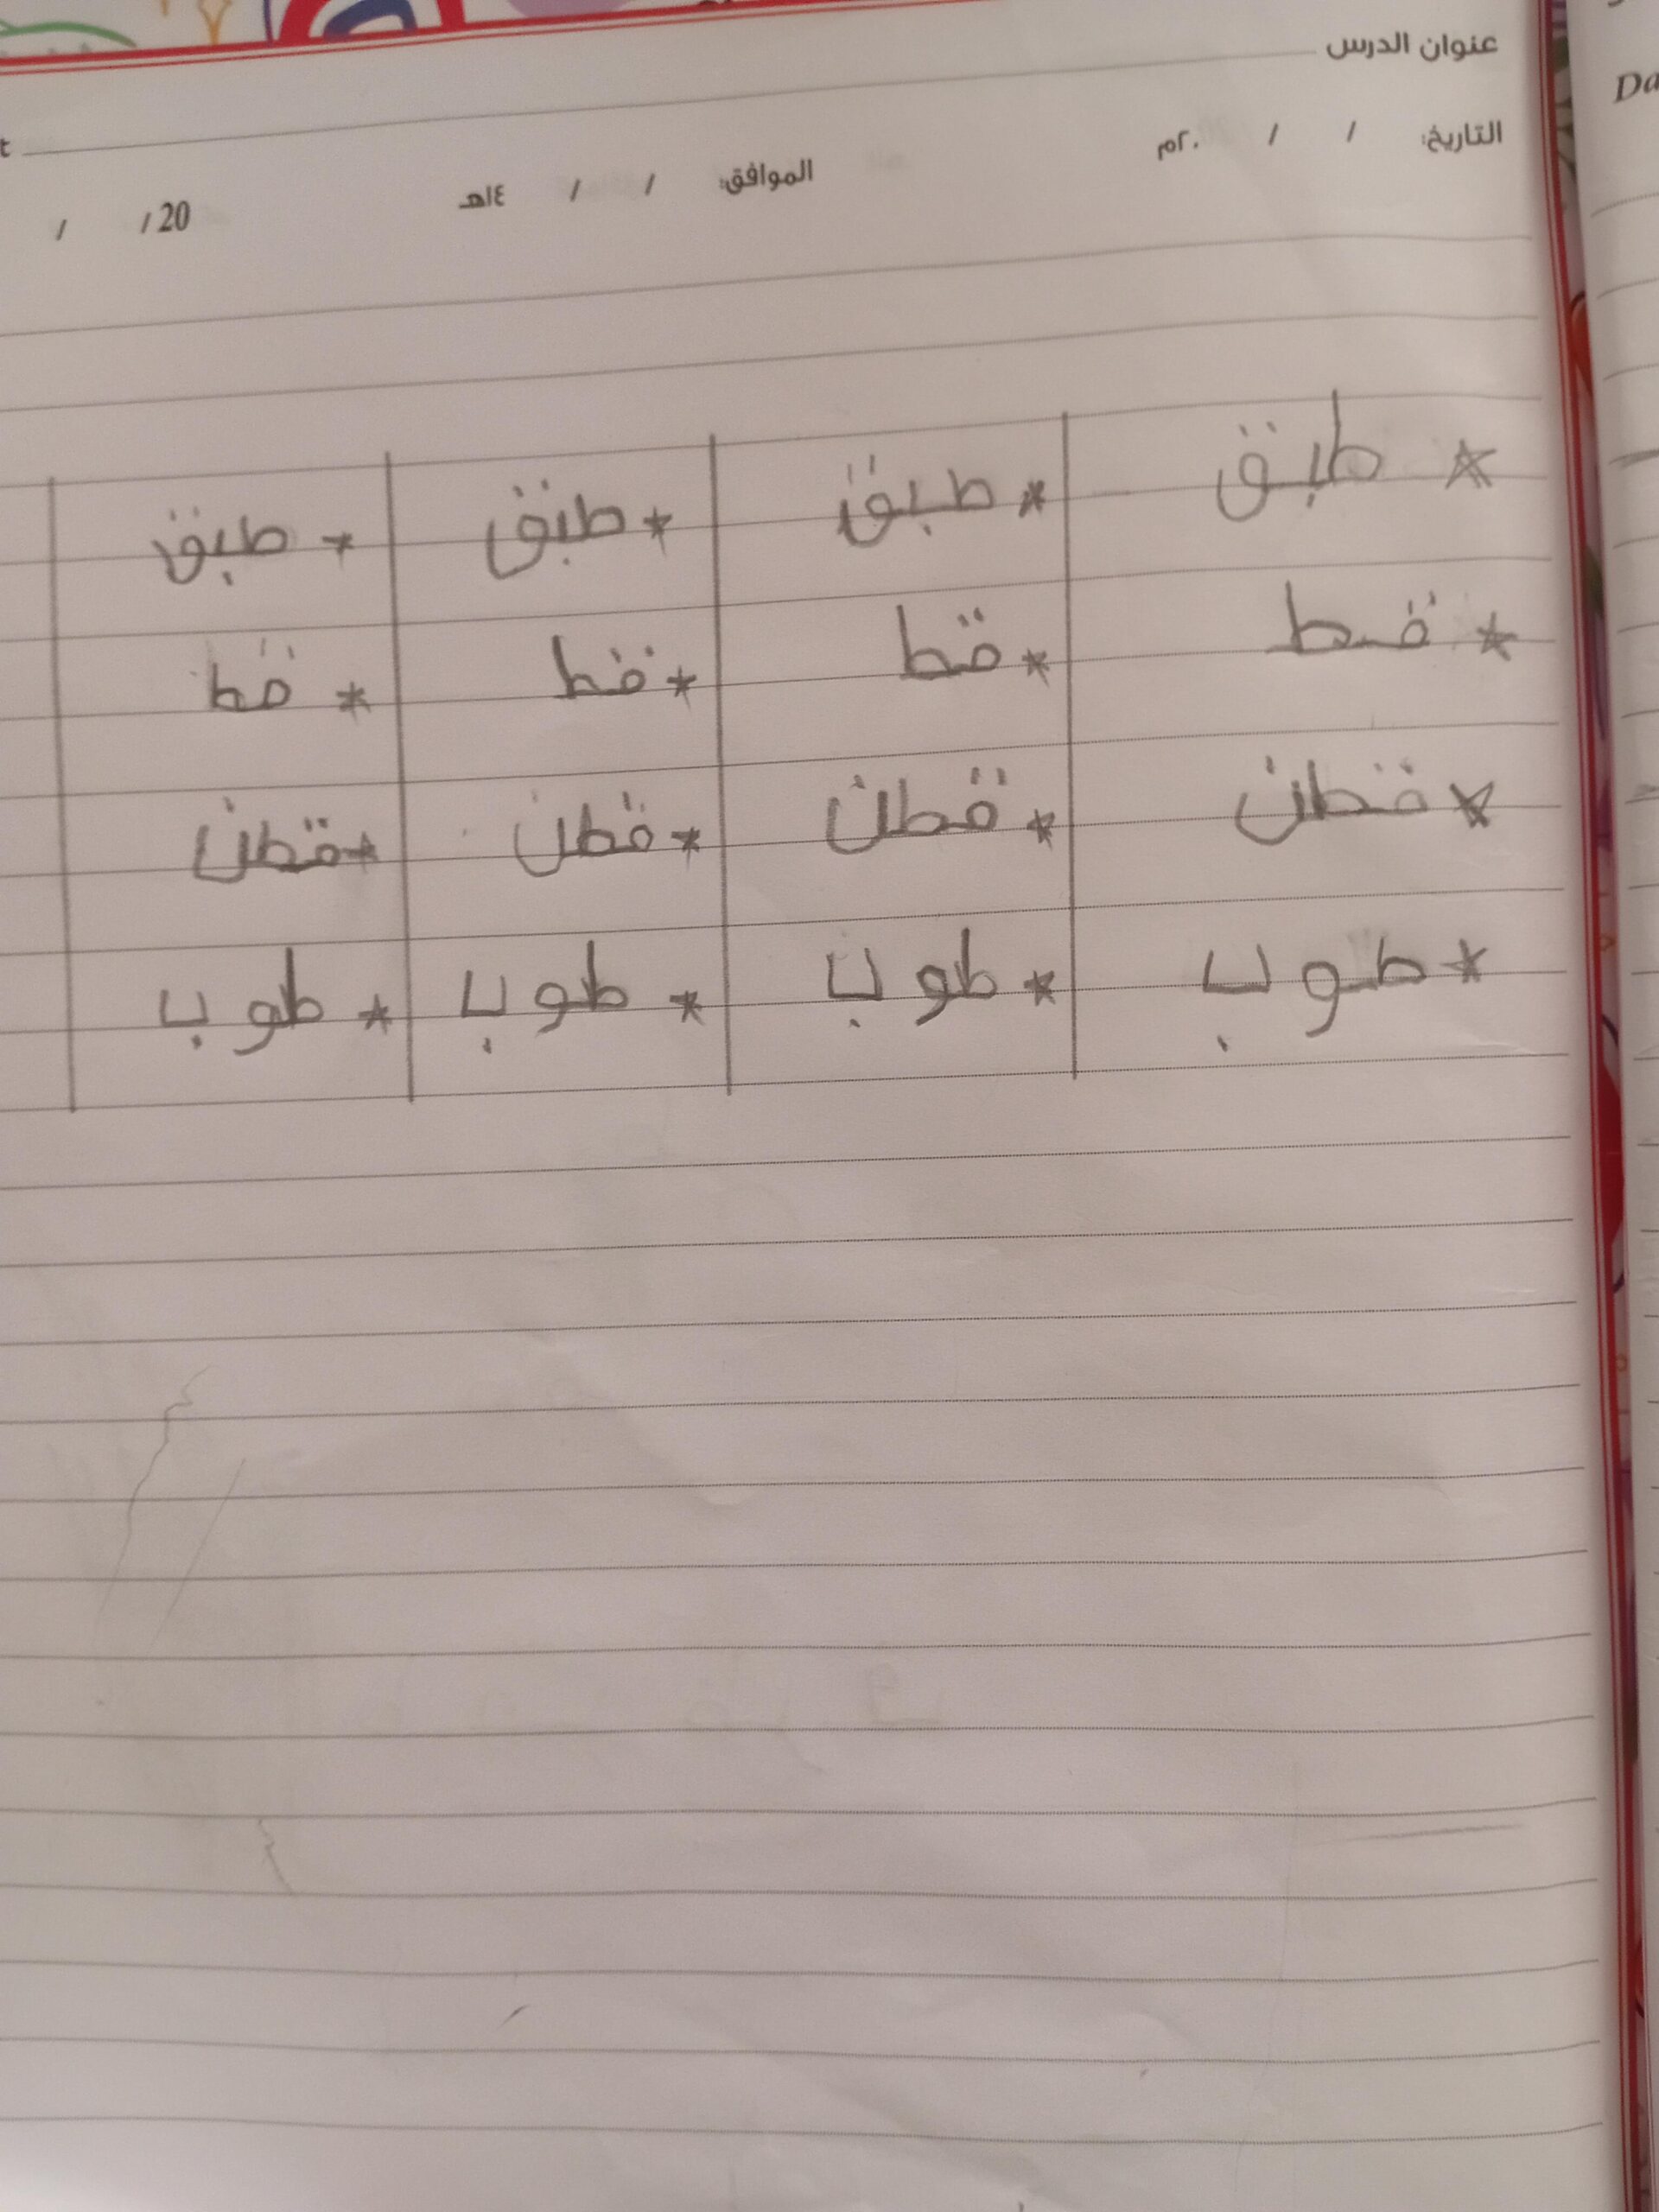 عنوان الدرس
التاريخ: / / ٢٠م الموافق: / / ١٤هـ / / 20
* طبق * طبق * طبق * طبق
* قط * قط * قط * قط
* قطن * قطن * قطن * قطن
* طوب * طوب * طوب * طوب